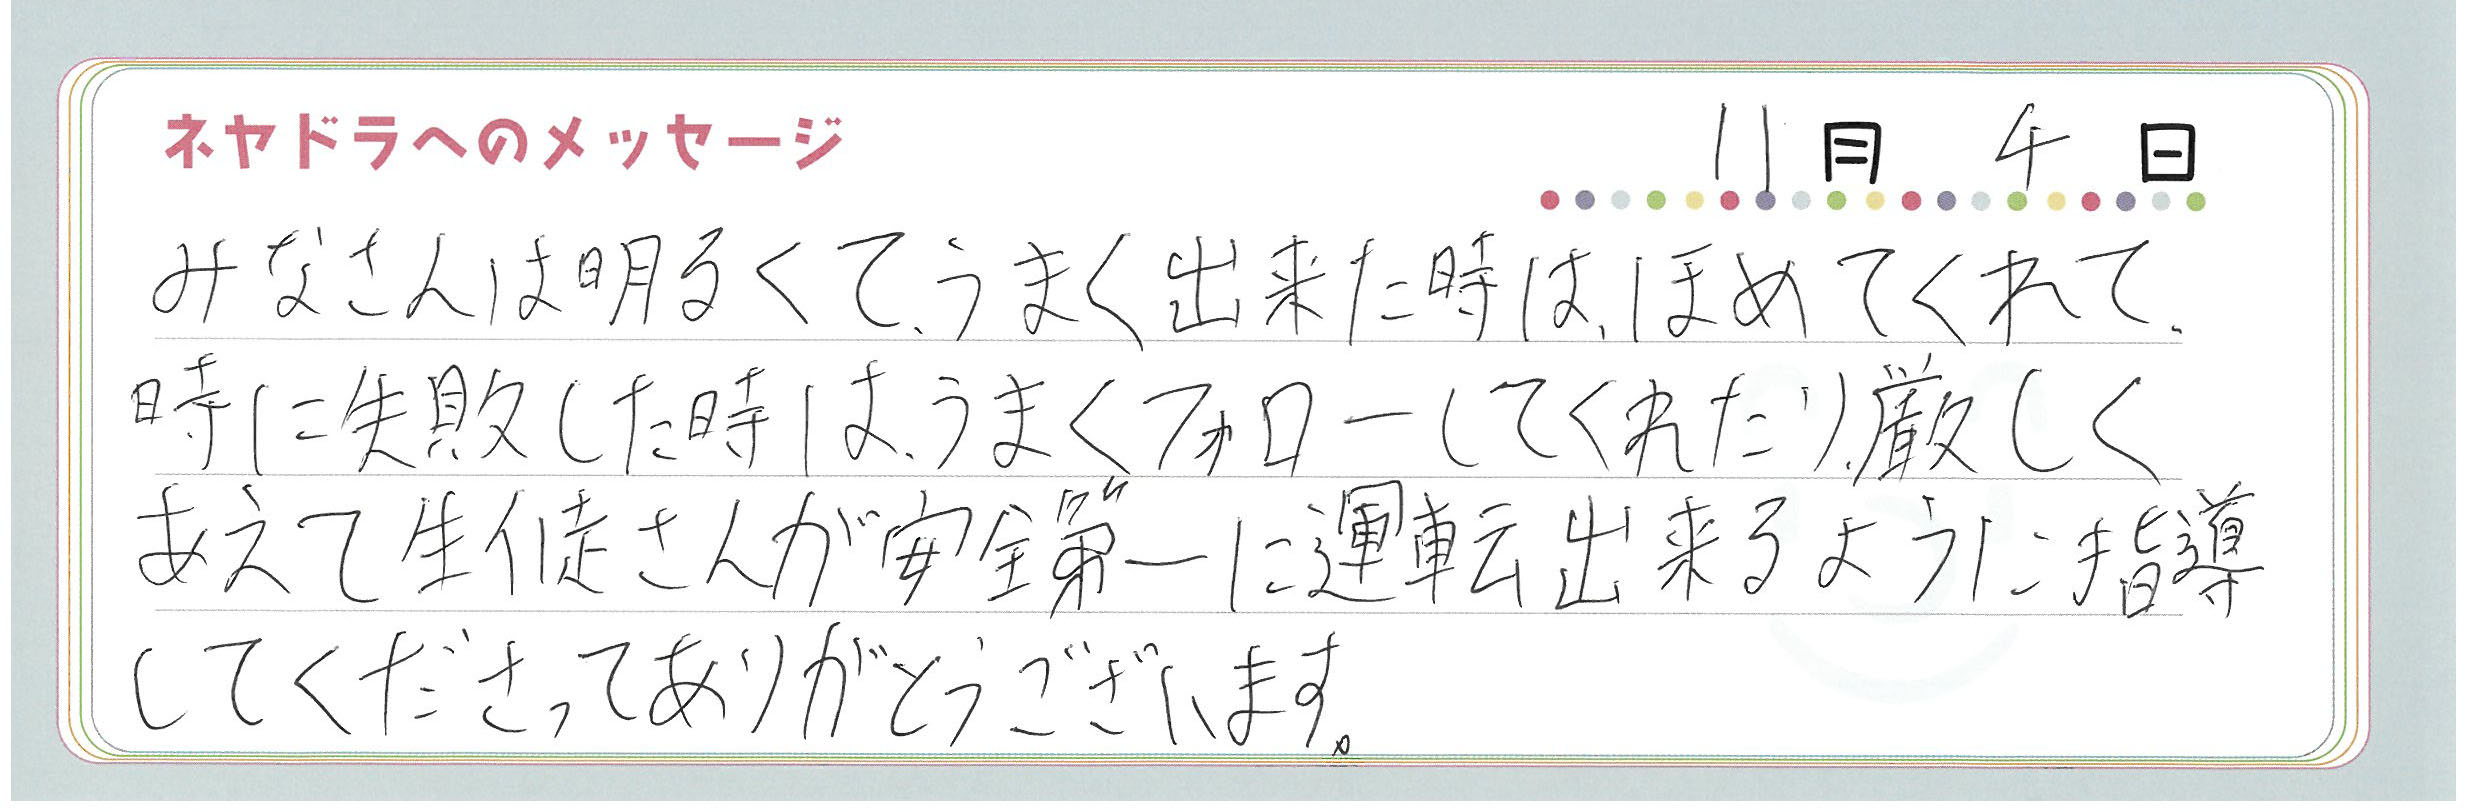 ネヤドラへのメッセージ
11月 4日
みなさんは明るくて、うまく出来た時は、ほめてくれて、
時に失敗した時は、うまくフォローしてくれたり、厳しく
あえて生徒さんが安全第一に運転出来るように指導
してくださってありがとうございます。